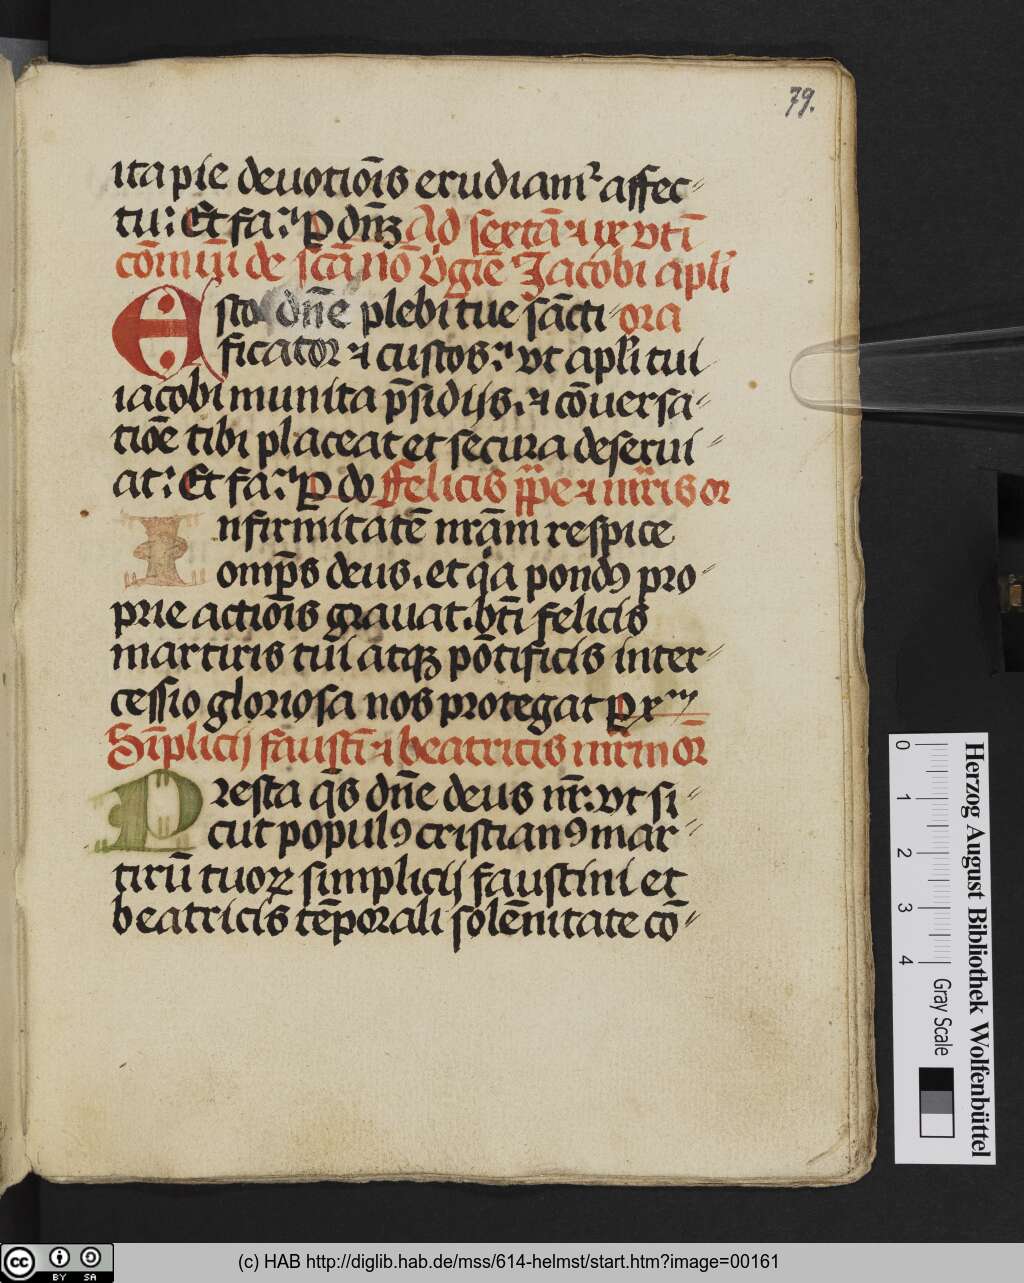 79.
ita pie deuotiōis erudiamᷣ affec⸗
tu: Et fa: ꝑ dn̄ꝫ Ad sextā ⁊ ix vtī
cōm iiij de sctā nō v̄gīe Jacobi apl̄i
Esto dn̄e plebi tue sācti⸗ ora
ficator ⁊ custos: vt apl̄i tui
iacobi munita p̄sidijs. ⁊ cōuersa⸗
tiōe tibi placeat et secura deserui⸗
at: Et fa: ꝑ do Felicis ꝑpe ⁊ mr̄ris or
Infirmitatē nrām respice
omp̄s deus. et q̄a pondꝰ pro⸗
prie actiōis grauat. bt̄i felicis
martiris tui atqꝫ pōtificis inter⸗
cessio gloriosa nos protegat ꝑ x
Sīplicij faustī ⁊ beatricis mr̄m or̄
Presta q̄s dn̄e deus nr̄: vt si⸗
cut populꝰ cristianꝰ mar⸗
tirū tuoꝝ simplicij faustini et
beatricis tēporali solēnitate cō⸗
0 1 2 3 4
Gray Scale
Herzog August Bibliothek Wolfenbüttel
cc BY SA
(c) HAB http://diglib.hab.de/mss/614-helmst/start.htm?image=00161